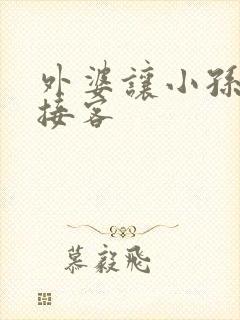 外婆讓小孫
接客
慕毅飛